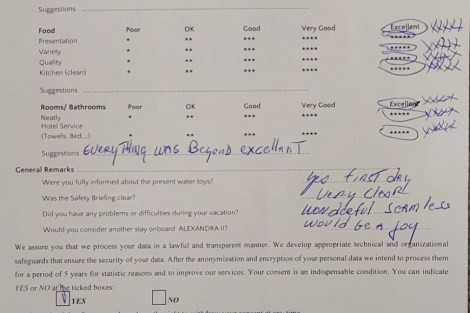 Suggestions
Food Poor OK Good Very Good Excellent
Presentation * ** *** **** *****
Variety * ** *** **** *****
Quality * ** *** **** *****
Kitchen (clean) * ** *** **** *****
Suggestions
Rooms/ Bathrooms Poor OK Good Very Good Excellent
Neatly * ** *** ****
Hotel Service
(Towels, Bed...) * ** *** **** *****
Suggestions EVERYTHING WAS Beyond excellanT
General Remarks
Were you fully informed about the present water toys? yes FIRST DAY
Was the Safety Briefing clear? VERY CLEAR
Did you have any problems or difficulties during your vacation? wonderful seamless
Would you consider another stay onboard ALEXANDRA II? would be a joy
We assure you that we process your data in a lawful and transparent manner. We develop appropriate technical and organizational
safeguards that ensure the security of your data. After the anonymization and encryption of your personal data we intend to process them
for a period of 5 years for statistic reasons and to improve our services. Your consent is an indispensable condition. You can indicate
YES or NO at the ticked boxes:
YES NO